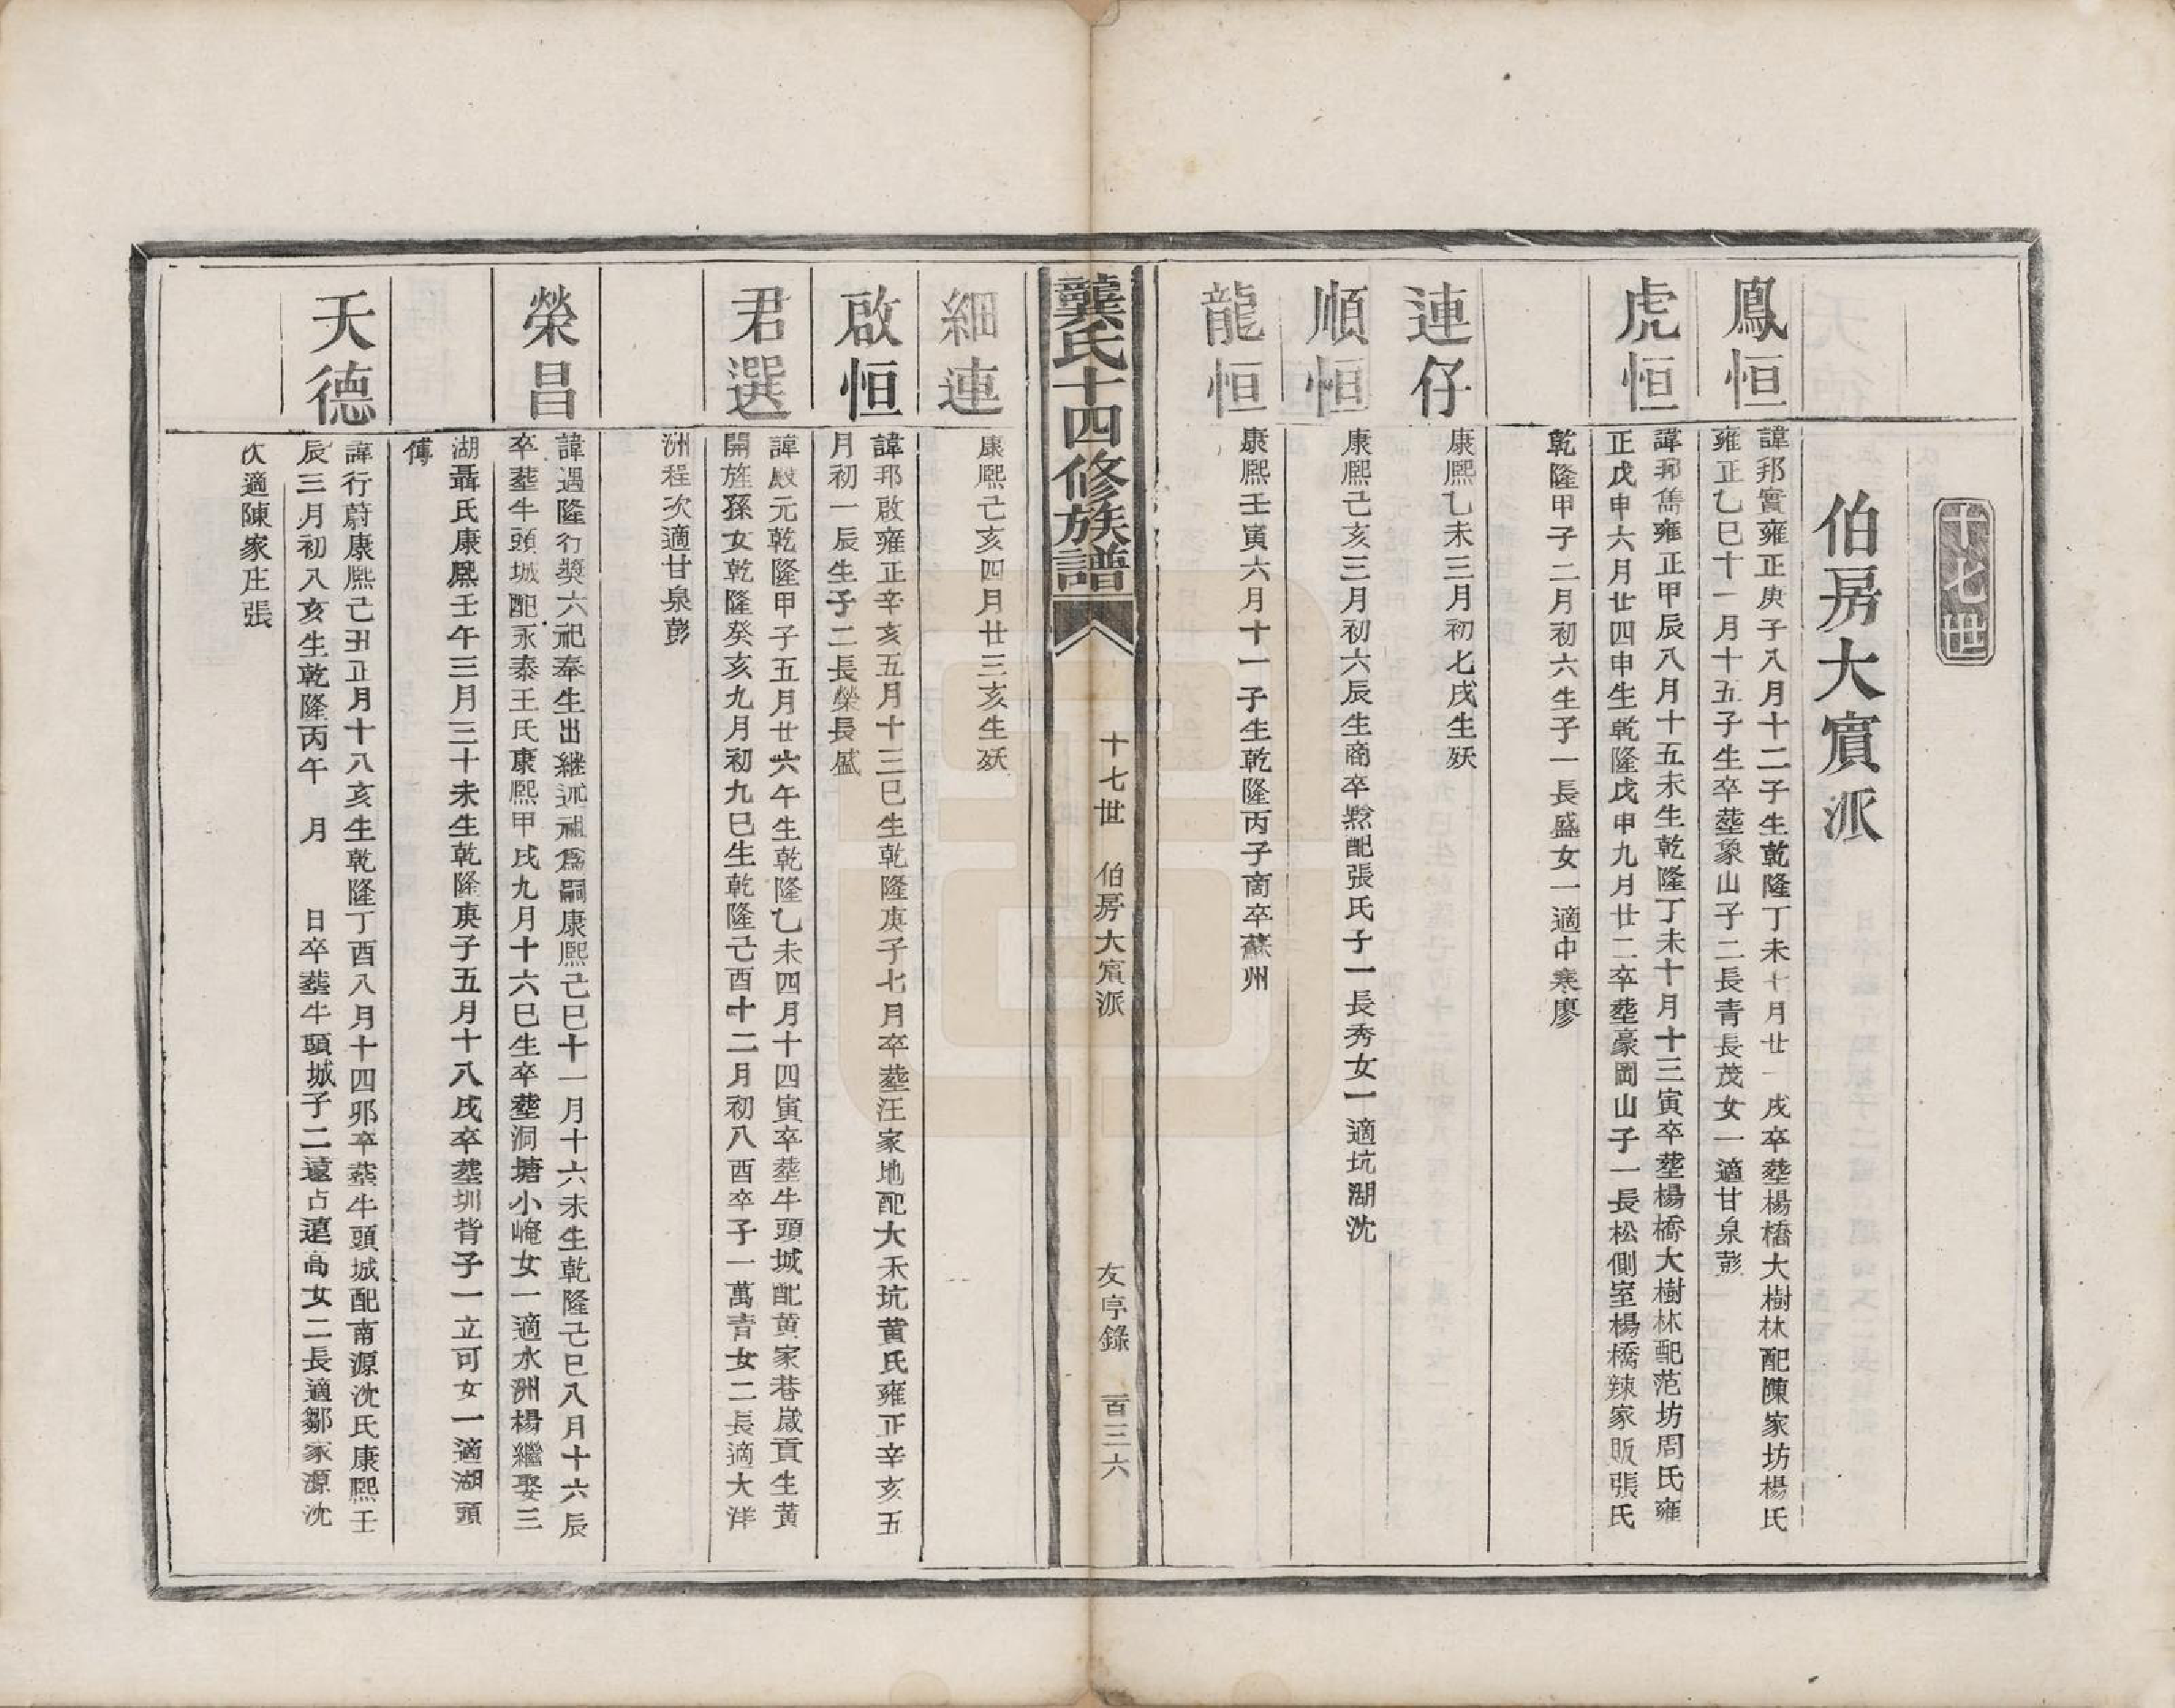 十七世
伯房大賔派
鳳恒
諱邦實雍正庚子八月十二子生乾隆丁未七月廿一戌卒塟楊橋大樹林配陳家坊楊氏
雍正乙巳十一月十五子生卒塟象山子二長青長茂女一適甘泉彭
虎恒
諱邦雋雍正甲辰八月十五未生乾隆丁未十月十三寅卒塟楊橋大樹林配范坊周氏雍
正戊申六月廿四申生乾隆戊申九月廿二卒塟豪岡山子一長松側室楊橋辣家販張氏
乾隆甲子二月初六生子一長盛女一適中寒廖
連仔
康熙乙未三月初七戌生殀
順恒
康熙己亥三月初六辰生商卒黟配張氏子一長秀女一適坑湖沈
龍恒
康熙壬寅六月十一子生乾隆丙子商卒蘇州
龔氏十四修族譜
十七世 伯房大賔派
友亭錄 百三六
細連
康熙己亥四月廿三亥生殀
啟恒
諱邦啟雍正辛亥五月十三巳生乾隆庚子七月卒塟汪家地配大禾坑黄氏雍正辛亥五
月初一辰生子二長榮長盛
君選
諱殿元乾隆甲子五月廿六午生乾隆乙未四月十四寅卒塟牛頭城配黄家巷歲貢生黄
開旌孫女乾隆癸亥九月初九巳生乾隆己酉十二月初八酉卒子一萬青女二長適大洋
洲程次適甘泉彭
榮昌
諱遇隆行奬六祀奉生出継述補爲嗣康熙己巳十一月十六未生乾隆己巳八月十六辰
卒塟牛頭城配永泰王氏康熙甲戌九月十六巳生卒塟洞塘小崦女一適水洲楊繼娶三
湖聶氏康熙壬午三月三十未生乾隆庚子五月十八戌卒塟圳背子一立可女一適湖頭
傅
天德
諱行蔚康熙己丑正月十八亥生乾隆丁酉八月十四邜卒塟牛頭城配南源沈氏康熙壬
辰三月初八亥生乾隆丙午 月 日卒塟牛頭城子二遠占遠高女二長適鄒家源沈
次適陳家庄張